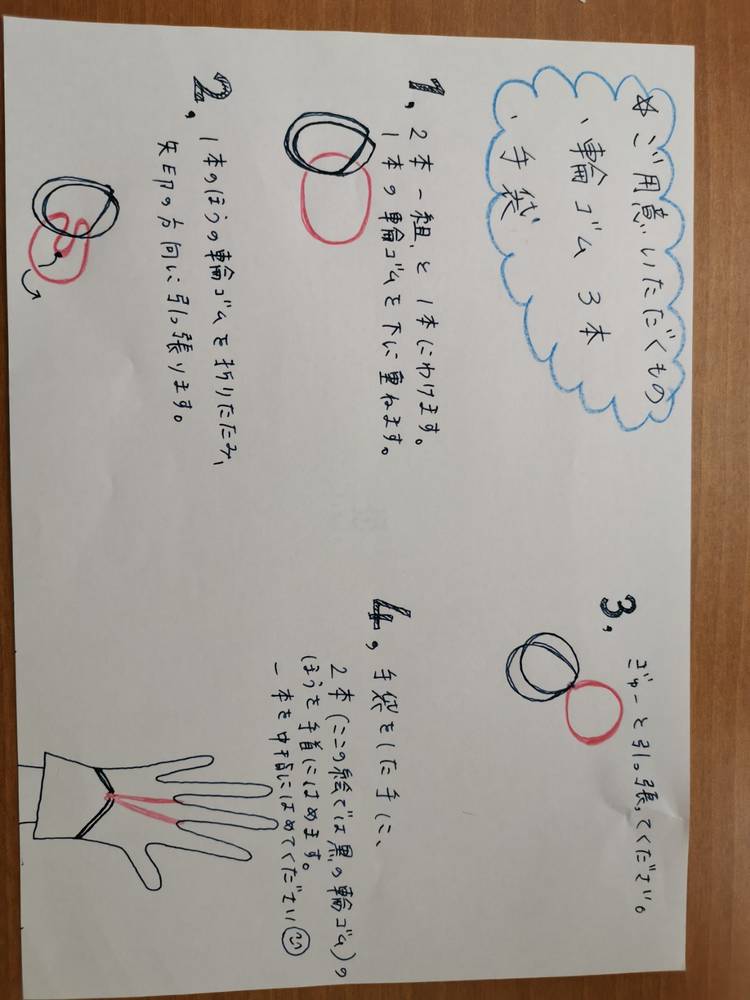 ☆ご用意いただくもの
、輪ゴム 3本
、手袋
1, 2本一組と1本にわけます。
1本の輪ゴムを下に重ねます。
2, 1本のほうの輪ゴムを折りたたみ、
矢印の方向に引っ張ります。
3, ぎゅーと引っ張ってください。
4, 手袋をした手に、
2本(ここの絵では黒の輪ゴム)の
ほうを手首にはめます。
一本を中指にはめてください